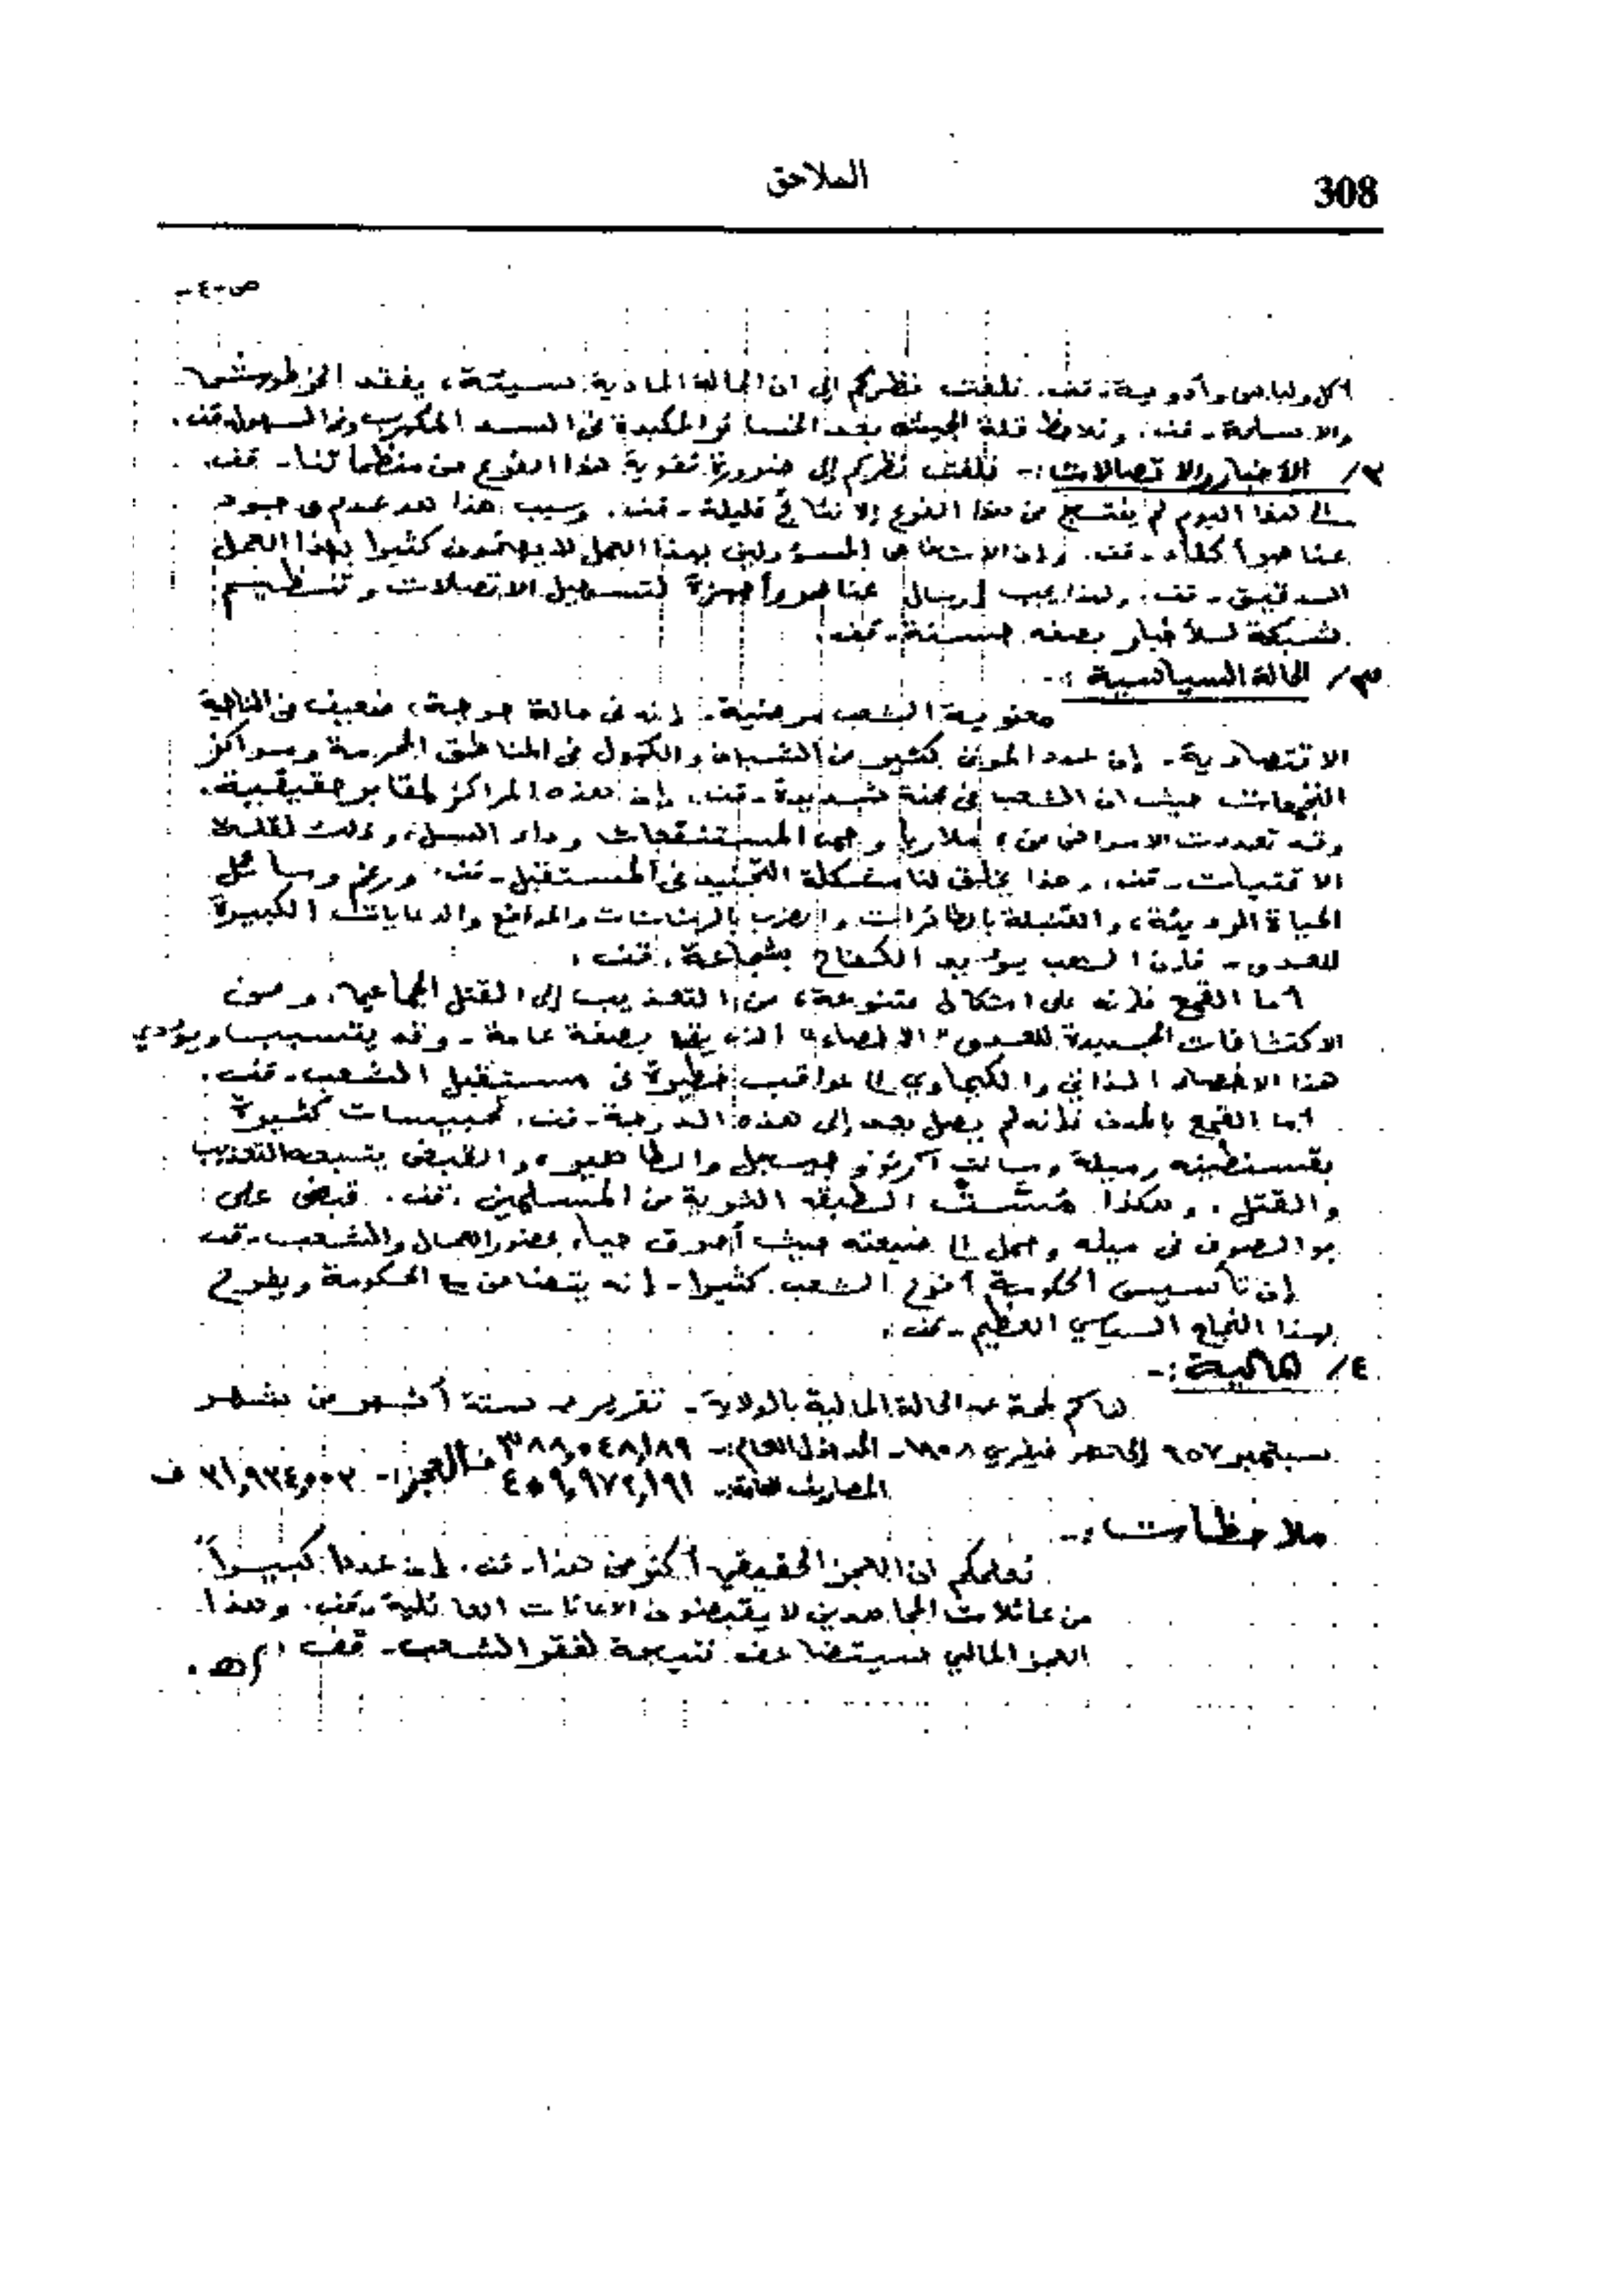 308
الملاحق
ص-٤-
أكل ولباس وأدوية. قف. نلفت نظركم إلى ان الحالة المادية سيئة، يفقد الخرطوش
والاسلحة. قف. ونلاحظ قلة الجيش بعد الخسائر المكبدة في السد المكهرب وفي السهول قف.
٢/ الأخبار والاتصالات :- نلفت نظركم إلى ضرورة تقوية هذا الفرع من منظماتنا - قف.
إلى هذا اليوم لم ينتج من هذا الفرع إلا نتائج قليلة - قف. وسبب هذا هو عدم وجود
عناصر أكفاء - قف. وان الاشخاص المسؤولين بهذا العمل لا يهتمون كثيرا بهذا العمل
الدقيق - قف. ولهذا يجب إرسال عناصر وأجهزة لتسهيل الاتصلات وتنظيم
شبكة للأخبار بصفه حسنة - قف.
٣/ الحالة السياسية :-
معنوية الشعب مرضية. إنه في حالة حرجة، ضعيف في الناحية
الاقتصادية. إن عدد الموتى كثير من الشبان والكهول في المناطق المحرمة ومراكز
التجمعات حيث ان الشعب في محنة شديدة - قف. إن هذه المراكز لمقابر حقيقية.
وقد تعددت الامراض من ملاريا وحمى المستنقعات وداء السل، وذلك لقلة
الاقتيات - قف. وهذا يخلق لنا مشكلة التجنيد في المستقبل - قف. ورغم وسائل
الحياة الرديئة، والقنبلة بالطائرات والضرب بالرشاشات والمدافع والدعايات الكبيرة
للعدو - فان الشعب يؤيد الكفاح بشجاعة. قف.
أما القمع فإنه على اشكال متنوعة، من التعذيب إلى القتل الجماعي، ومن
الاكتشافات الجديدة للعدو "الاخصاء" الذي يقع بصفة عامة - وقد يتسبب ويؤدي
هذا الاخصاء الذاتي والكيماوي إلى عواقب خطيرة في مستقبل الشعب - قف.
أما القمع بالمدن فإنه لم يصل بعد إلى هذه الدرجة - قف. تحبيسات كثيرة
بقسنطينه وميلة وسانت آرنو وجيجل والطاهير، والقبض يتبعه التعذيب
والقتل. وهكذا الطبقه الثرية من المسلمين. قف. قبض على
بو الصوف في ميله وحمل إلى ضيعته حيث أحرق حيا، بحضور العمال والشعب. قف
إن تأسيس الحكومة أفرح الشعب كثيرا - إنه يتضامن مع الحكومة ويفرح
بهذا النجاح السياسي العظيم - قف.
٤/ المالية :-
هاكم لمحة عن الحالة المالية بالولاية. تقرير عن ستة أشهر من شهر
سبتمبر ٩٥٧ إلى شهر فيفري ١٩٥٨ - المدخول العام:- ٣٨٨,٠٤٨,١٨٩ ف العجز:- ٣١,٩٢٤,٠٠٢ ف
المصاريف العامة:- ٤٥٩,٩٧٢,١٩١
ملاحظات :-
نعلمكم ان العجز الحقيقي أكثر من هذا - قف. إن عددا كبيراً
من عائلات المجاهدين لا يقبضون الاعانات العائلية - قف. وهذا
العجز المالي سيتضاعف نتيجة لفقر الشعب - قف. اهـ.